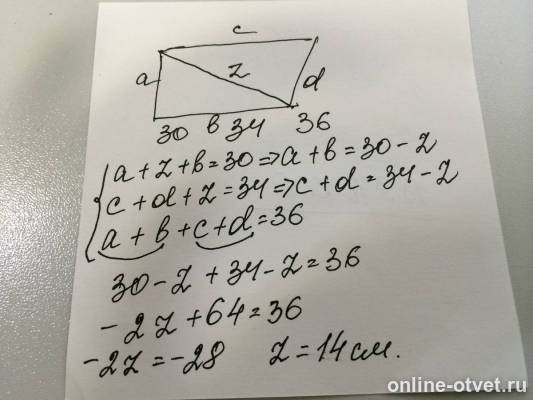 c
a z d
30 b 34 36
a + z + b = 30 => a + b = 30 - z
c + d + z = 34 => c + d = 34 - z
a + b + c + d = 36
30 - z + 34 - z = 36
- 2z + 64 = 36
- 2z = - 28 z = 14 см.
online-otvet.ru